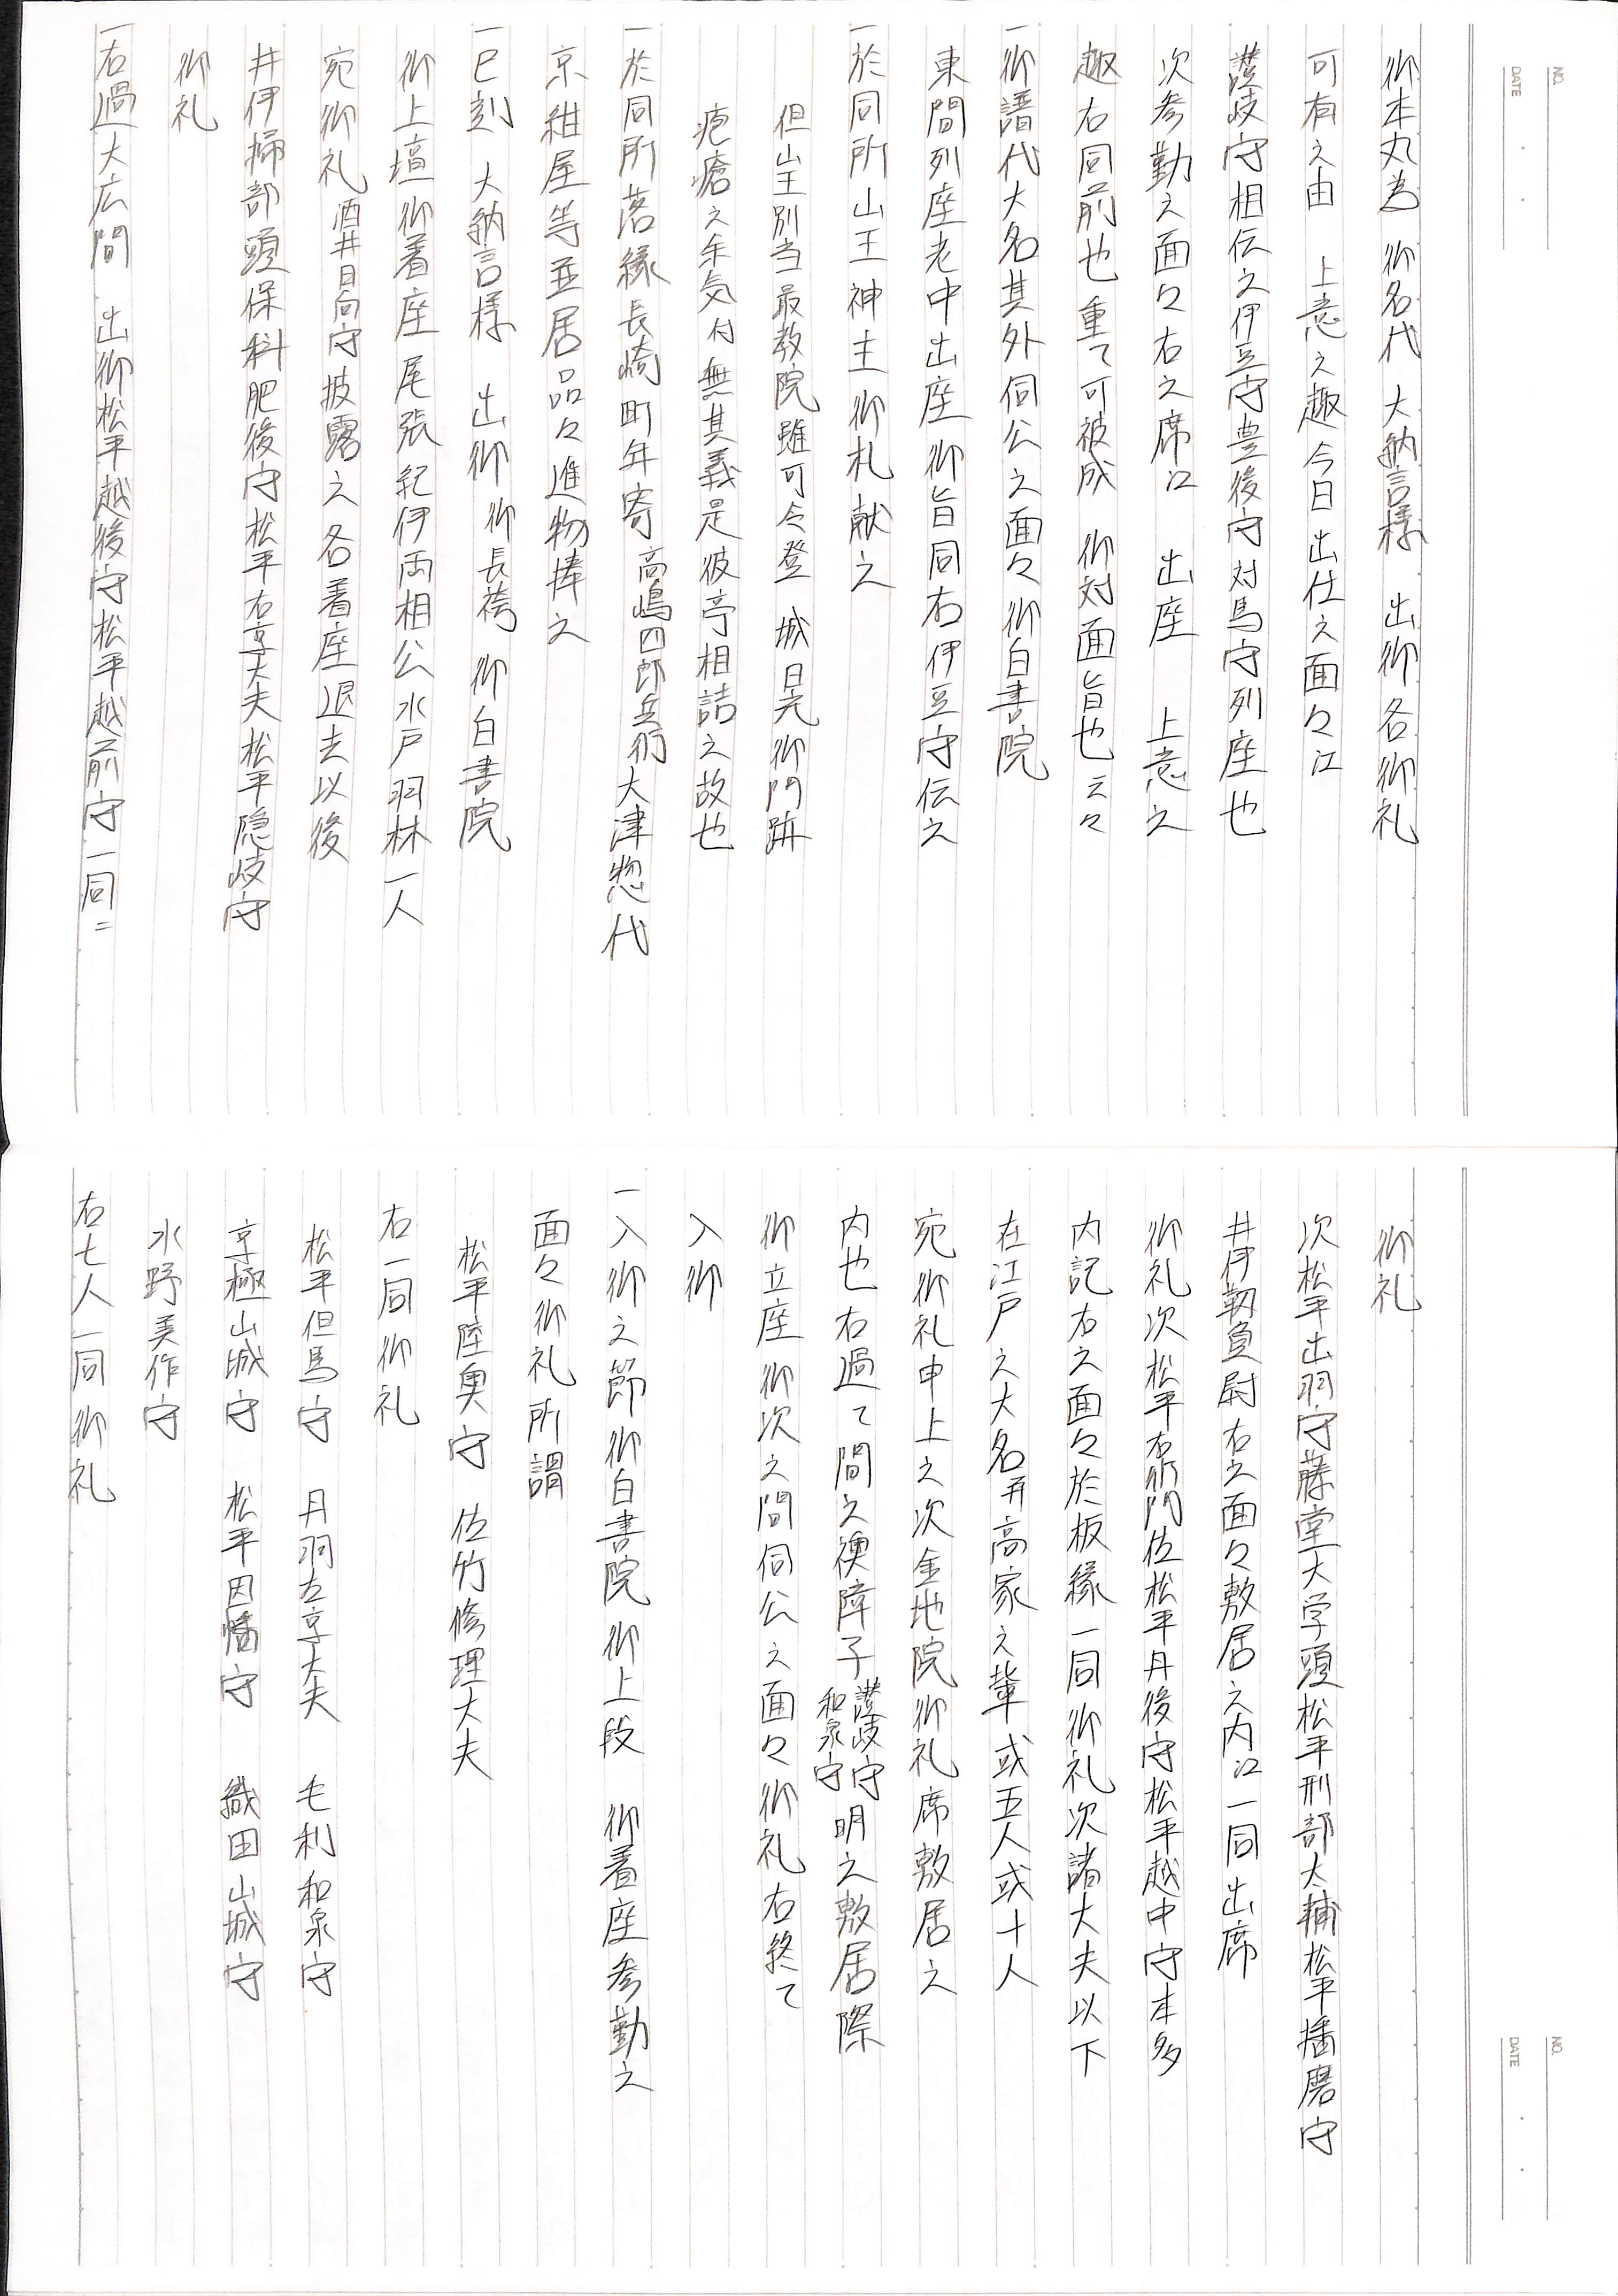 NO.
DATE
御本丸為　御名代　大納言様　出御各御礼
可有之由　上意之趣今日出仕之面々江
讃岐守相伝之伊豆守豊後守対馬守列座也
次参勤之面々右之席江　出座　上意之
趣右同前也重て可被成　御対面旨也云々
一御譜代大名其外伺公之面々御白書院
東間列座老中出座御旨同右伊豆守伝之
一於同所山王神主御札献之
但山王別当最教院雖可令登　城日光御門跡
疱瘡之余気付無其義是彼亭相詰之故也
一於同所落縁長崎町年寄高嶋四郎兵衛大津惣代
京紺屋等並居品々進物捧之
一巳刻　大納言様　出御　御長袴　御白書院
御上壇御着座尾張紀伊両相公水戸羽林一人
宛御礼酒井日向守披露之各着座退去以後
井伊掃部頭保科肥後守松平右京大夫松平隠岐守
御礼
一右過大広間　出御松平越後守松平越前守一同ニ
NO.
DATE
御礼
次松平出羽守藤堂大学頭松平刑部大輔松平播磨守
井伊靱負尉右之面々敷居之内江一同出席
御礼次松平右衛門佐松平丹後守松平越中守本多
内記右之面々於板縁一同御礼次諸大夫以下
在江戸之大名并高家之輩或五人或十人
宛御礼申上之次金地院御礼席敷居之
内也右過て間之襖障子讃岐守和泉守明之敷居際
御立座御次之間伺公之面々御礼右終て
入御
一入御之節御白書院御上段　御着座参勤之
面々御礼所謂
松平陸奥守　佐竹修理大夫
右一同御礼
松平但馬守　丹羽左京大夫　毛利和泉守
京極山城守　松平因幡守　織田山城守
水野美作守
右七人一同御礼